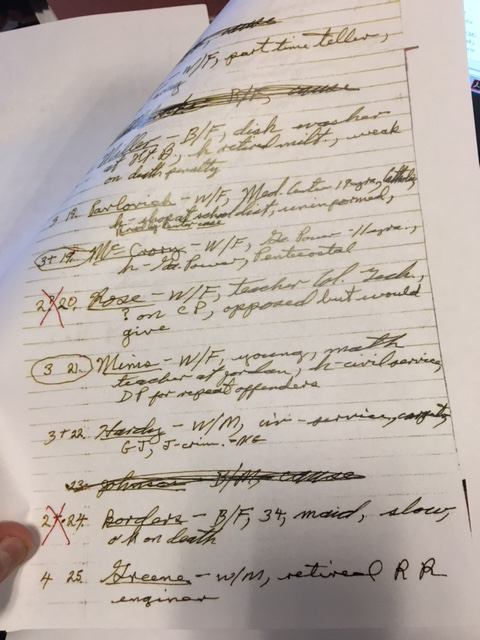 W/F, part time teller,
B/F, cause
Miller - B/F, dish washer
at Ht. B, h retired milt, weak
on death penalty
3 18. Pavlovich - W/F, Med. Center 19 yrs, Catholic
h - shop at school dist, uninformed,
3+ 19. Mc Crory - W/F, Ga. Power - 11 yrs.,
h - Ga. Power, Pentecostal
2? 20. Rose - W/F, teacher Col. Tech,
? on CP, opposed but would
give
3 21. Mims - W/F, young, math
teacher at Jordan, h-civil service,
DP for repeat offenders
3+ 22. Hardy - W/M, civ - service,
G-J, J-crim. - NG
23. Johnson - B/M, cause
2+ 24. Borders - B/F, 34, maid, slow,
ok on death
4 25. Greene - W/M, retired R R
enginer